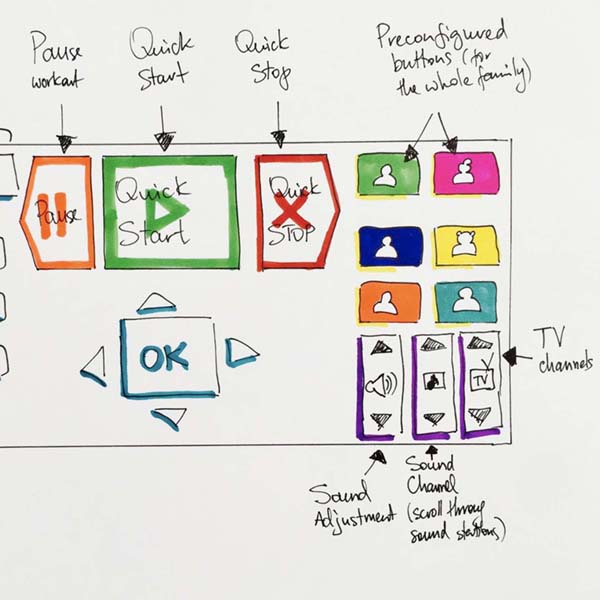 Pause
workout
Quick
Start
Quick
Stop
Preconfigured
buttons (for
the whole family)
Pause
Quick
Start
Quick
STOP
OK
TV
TV
channels
Sound
Adjustment
Sound
Channel
(scroll through
sound stations)